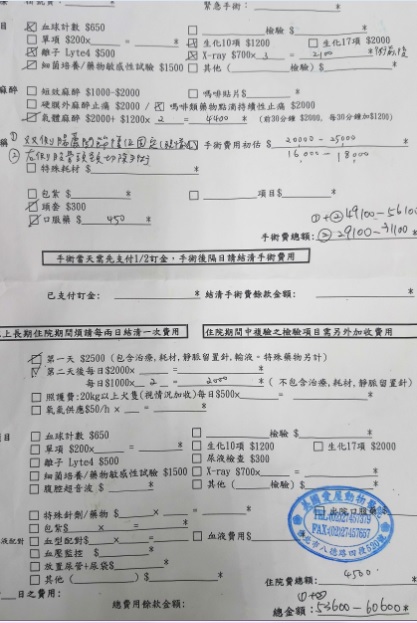 緊急手術: *
☑ 血球計數 $650 □ 檢驗 $ *
□ 單項 $200x = * ☑ 生化10項 $1200 □ 生化17項 $2000
☑ 離子 Lyte4 $500 ☑ X-ray $700x 3 = *
☑ 細菌培養/藥物敏感性試驗 $1500 □ 其他 ( 檢驗) $ *
麻醉 □ 短效麻醉 $1000~$2000 □ 嗎啡貼片$ *
□ 硬膜外麻醉止痛 $2000 / ☑ 嗎啡類藥物點滴持續性止痛 $2000
☑ 氣體麻醉 $2000+ $1200x 2 = 4400 * (前30分鐘 $2000, 每30分鐘加$1200)
稱 ① 手術費用初估 $ 20000 - 25000
② 右側股骨頭頸切除手術 16,000 - 18000
□ 特殊耗材 $ *
□ 包紮 $ * □ 項目$ *
☑ 頭套 $300
☑ 口服藥 $ 450 * ①+②49100-56100
手術費總額: ② 29100-31100 *
手術當天需先支付1/2訂金,手術後隔日請結清手術費用
已支付訂金: * 結清手術費餘款金額: *
上長期住院期間煩請每兩日結清一次費用 住院期間中複驗之檢驗項目需另外加收費用
☑ 第一天 $2500 (包含治療,耗材,靜脈留置針,輸液。特殊藥物另計)
☑ 第二天後每日$2000x =
每日$1000x 2 = 2000 * (不包含治療,耗材,靜脈留置針)
□ 照護費:20kg以上犬隻(視情況加收)每日$500x = *
□ 氧氣供應$50/h x = *
目 □ 血球計數 $650 □ 檢驗 $ *
□ 單項 $200x = * □ 生化10項 $1200 □ 生化17項 $2000
□ 離子 Lyte4 $500 □ 尿液檢查 $300
□ 細菌培養/藥物敏感性試驗 $1500 □ X-ray $700x = *
□ 腹腔超音波 $ * □ 其他 ( 檢驗) $ *
□ 特殊針劑/藥物 $ * □ 出院口服藥$
□ 包紮$ x = *
液配對 □ 血型配對$ x = * □ 血液費用$
□ 血壓監控 $ *
□ 放置尿管+尿袋$ *
□ 其他 ( ) $ *
英國愛屋動物醫院
TEL:(02)27457379
FAX:(02)27457657
北市八德路四段529號
4500
住院費總額: *
日之費用: ①+②
總費用餘款金額: 總金額: 53600-60600 *